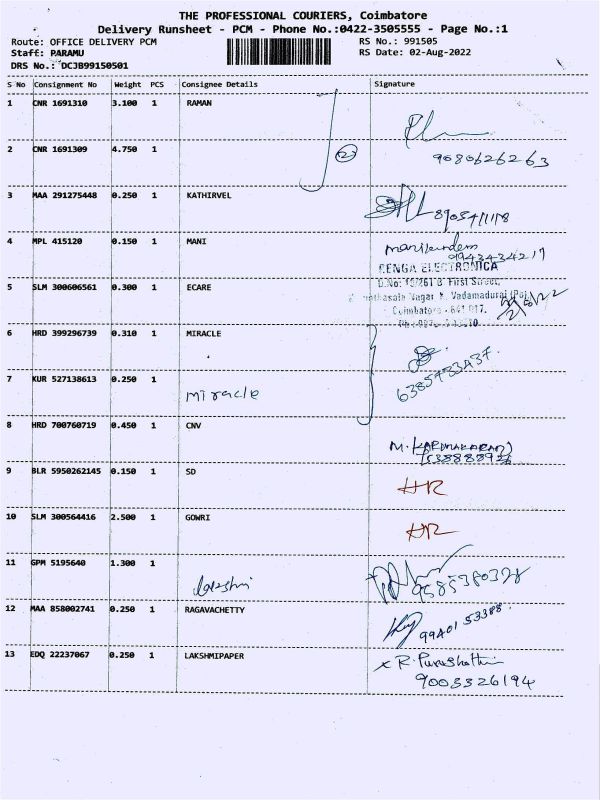 THE PROFESSIONAL COURIERS, Coimbatore
Delivery Runsheet - PCM - Phone No.:0422-3505555 - Page No.:1
Route: OFFICE DELIVERY PCM RS No.: 991505
Staff: PARAMU RS Date: 02-Aug-2022
DRS No.: DCJB99150501
S No Consignment No Weight PCS Consignee Details Signature
1 CNR 1691310 3.100 1 RAMAN
2 CNR 1691309 4.750 1 2 9080626263
3 MAA 291275448 0.250 1 KATHIRVEL
4 MPL 415120 0.150 1 MANI
9943434217
RENGA ELECTRONICA
5 SLM 300606561 0.300 1 ECARE D.No: 19/261 B First Street,
Nagar K. Vadamadurai (Po),
Coimbatore - 641 017.
6 HRD 399296739 0.310 1 MIRACLE
7 KUR 527138613 0.250 1 miracle
8 HRD 700760719 0.450 1 CNV
9 BLR 5950262145 0.150 1 SD HR
10 SLM 300564416 2.500 1 GOWRI HR
11 GPM 5195640 1.300 1 Lakshmi
12 MAA 858002741 0.250 1 RAGAVACHETTY
99401 53388
13 EDQ 22237067 0.250 1 LAKSHMIPAPER
9003326194